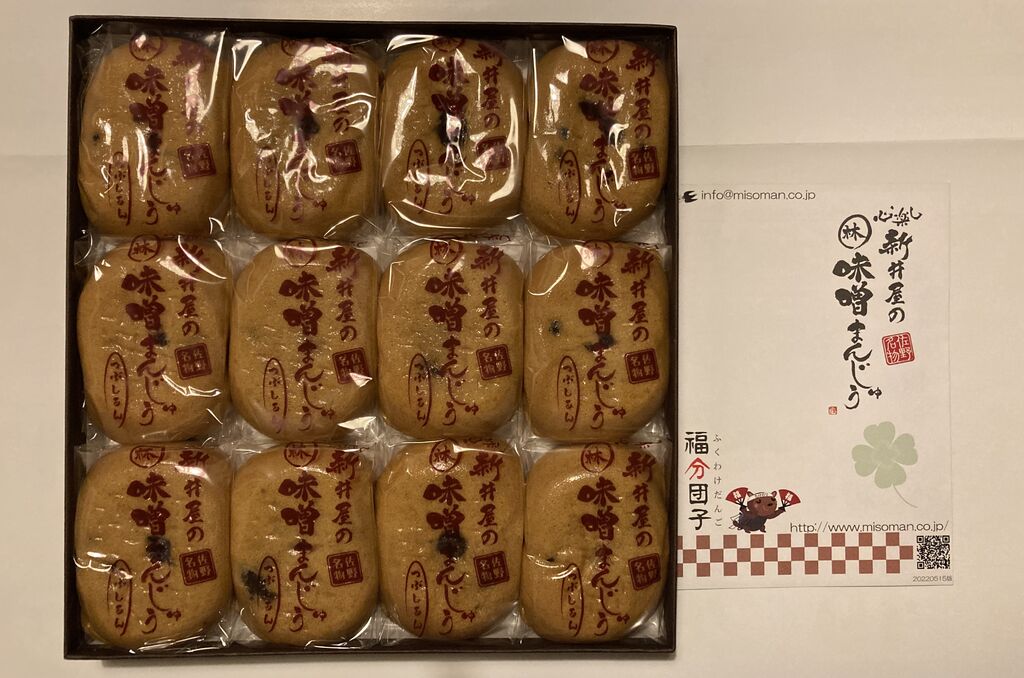 新井屋の
佐野
名物
林
味噌まんじゅう
つぶしあん
の
佐野
名物
林
味噌まんじゅう
つぶしあん
新井屋の
林
味噌まんじゅう
つぶしあん
新井屋の
佐野
名物
林
味噌まんじゅう
つぶしあん
新井屋の
佐野
名物
味噌まんじゅう
つぶしあん
新井屋の
味噌まんじゅう
つぶしあん
新井屋の
佐野
名物
味噌まんじゅう
つぶしあん
新井屋の
佐野
名物
味噌まんじゅう
つぶしあん
新井屋の
佐野
名物
林
味噌まんじゅう
つぶしあん
新井屋の
佐野
名物
林
味噌まんじゅう
つぶしあん
新井屋の
佐野
名物
林
味噌まんじゅう
つぶしあん
新井屋の
佐野
名物
林
味噌まんじゅう
つぶしあん
info@misoman.co.jp
心楽し
新井屋の
佐野
名物
林
味噌まんじゅう
ふくわけだんご
福分団子
福
福
http://www.misoman.co.jp/
20220515版